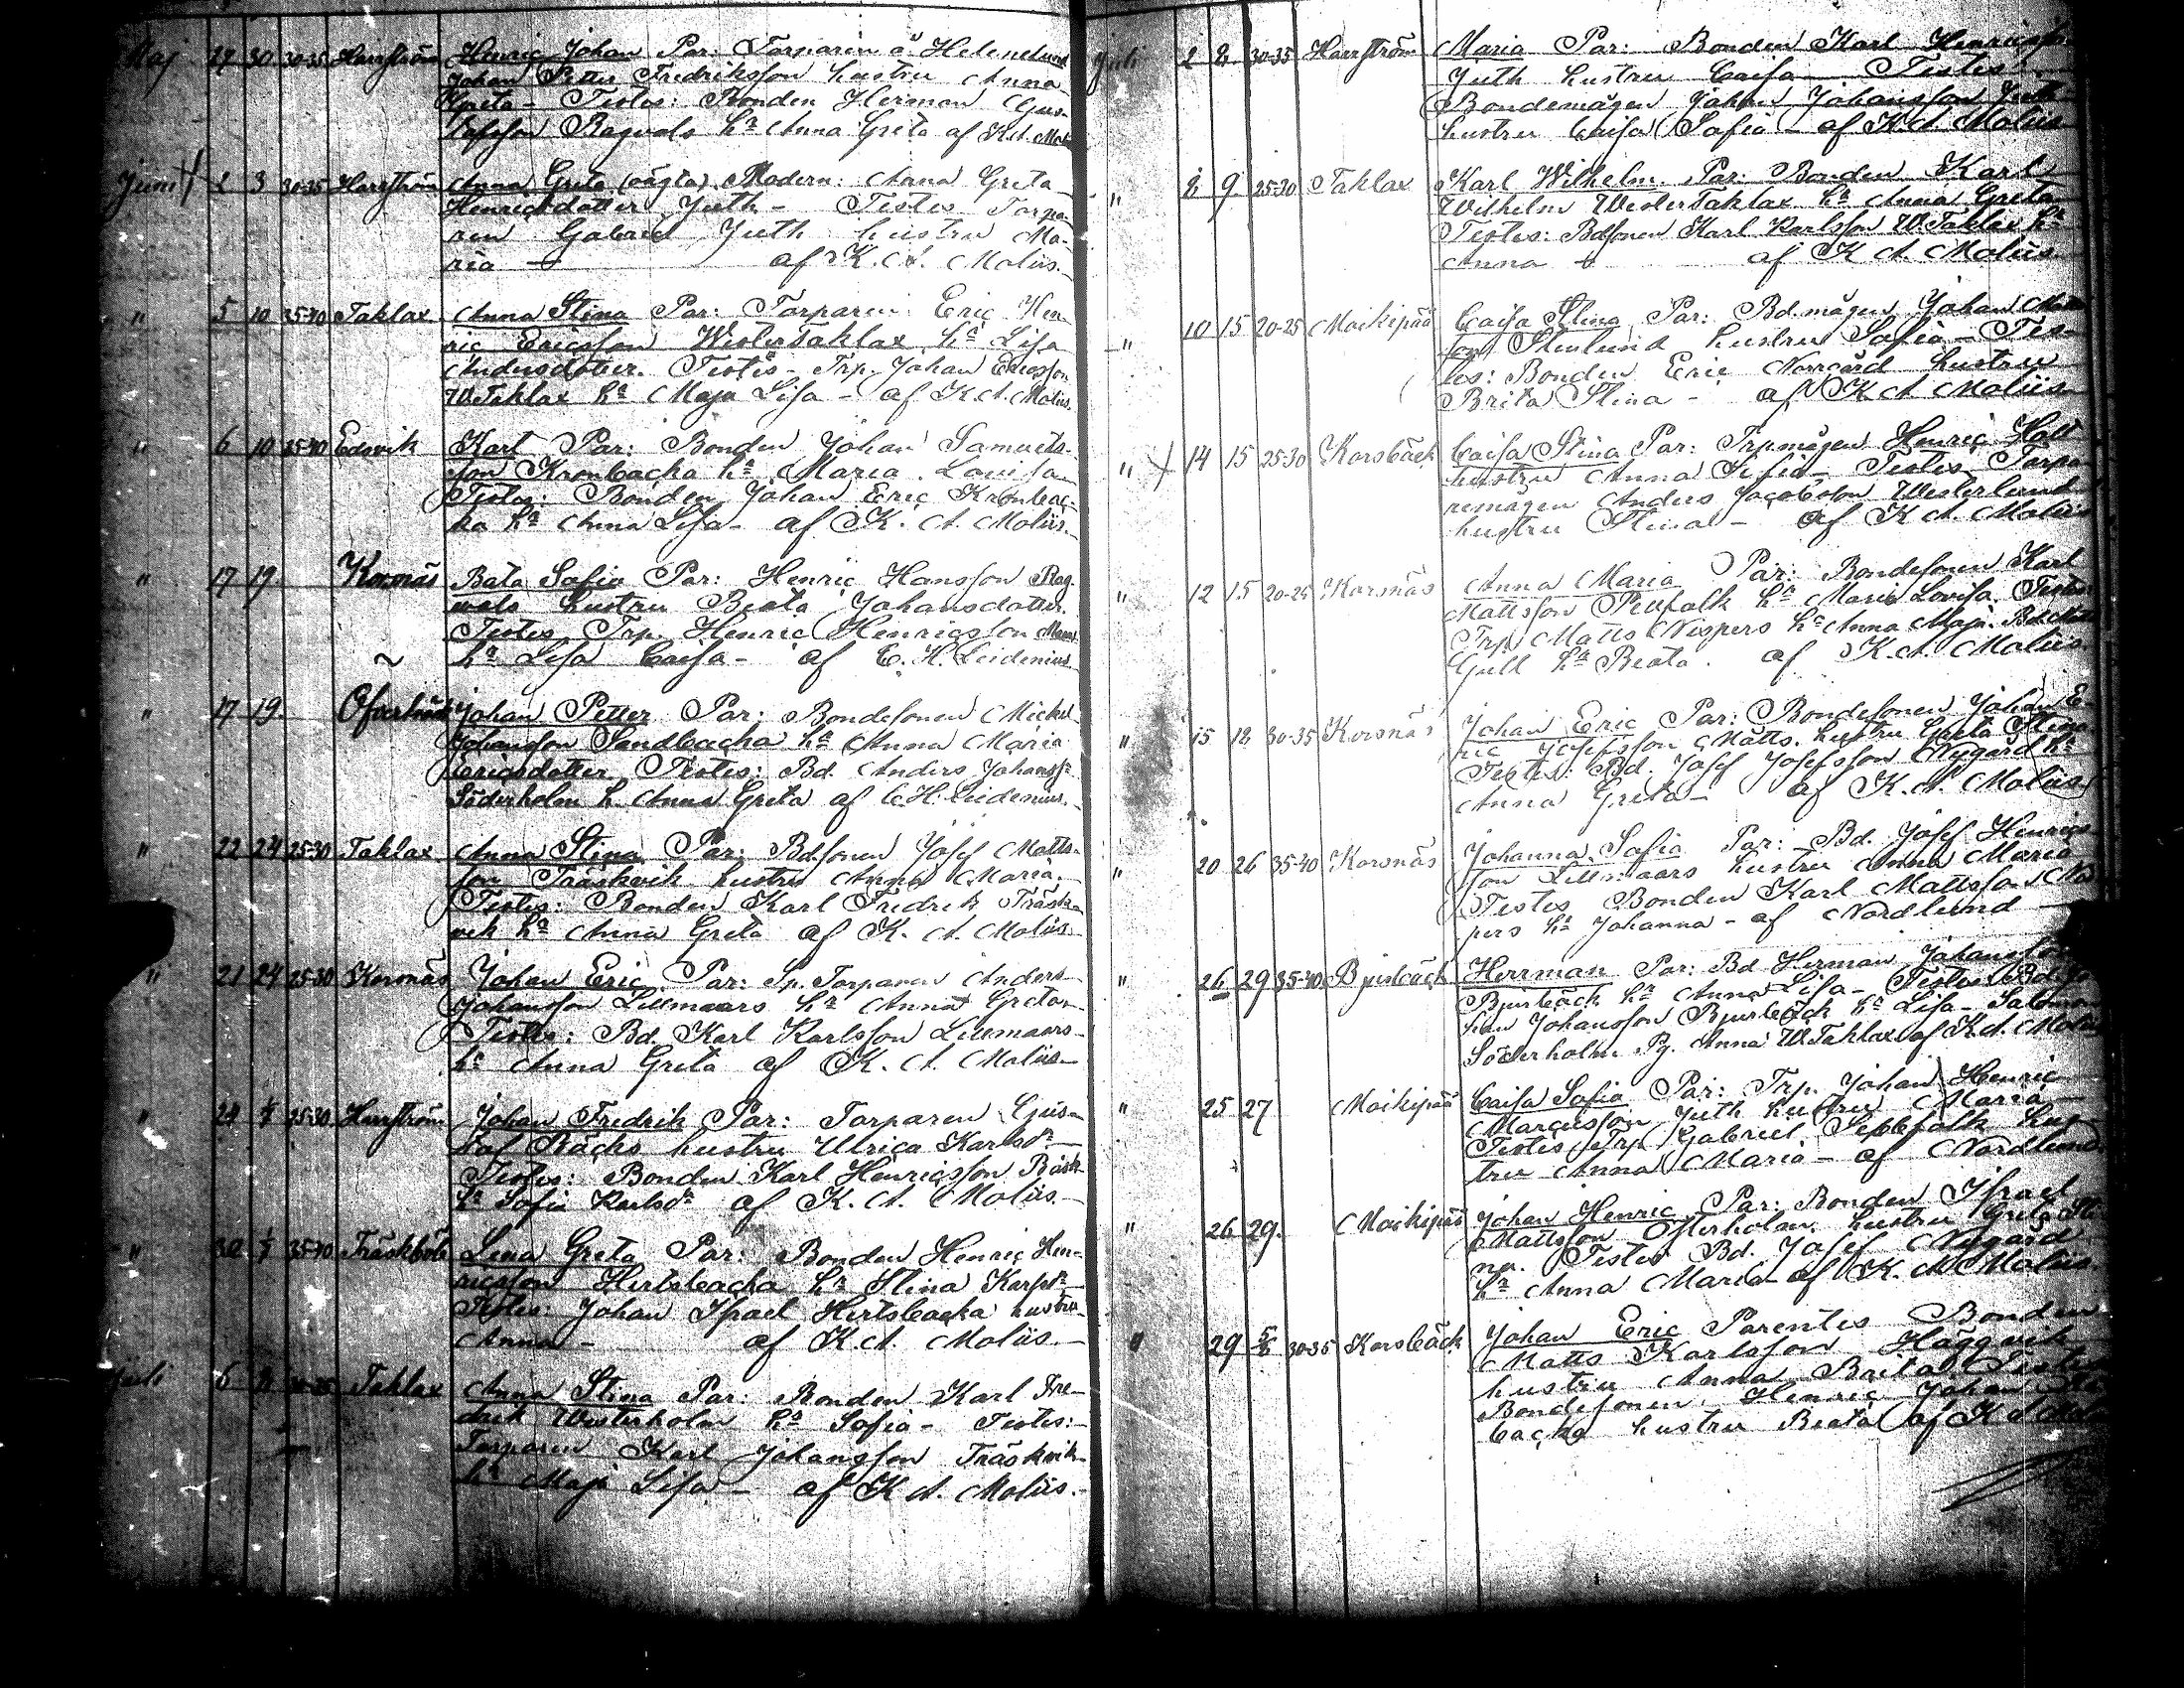 Maj 27 30 30-35 Harrström Henric Johan Par: Torparen å Helenelund
Johan Petter Fredriksson hustru Anna
Greta - Testes: Bonden Herman Gus-
tafsson Ragvals hª Anna Greta af K.A. Mol
Juni 2 3 30-35 Harrström Anna Greta (oägta) Modern: Anna Greta
Henricsdotter Juth - Testes Torpa-
ren Gabriel Juth hustru Ma-
ria - af K. A. Moliis.
" 5 10 35-40 Taklax Anna Stina Par: Torparen Eric Hen-
ric Ericsson WesterTaklax hª Lisa
Andersdotter. Testes - Trp. Johan Ericsson
W.Taklax hª Maja Lisa - af K.A. Moliis.
" 6 10 35-40 Edsvik Karl Par: Bonden Johan Samuels-
son Kronbacka hª Maria Lovisa
Testes: Bonden Johan Eric Kronbac-
ka hª Anna Lisa - af K. A. Moliis.
" 17 19 Korsnäs Bata Sofia Par: Henric Hansson Rag-
wals hustru Beata Johansdotter.
Testes Trp. Henric Henricsson
hª Lisa Caisa - af C. H. Leidenius
" 17 19. Johan Petter Par: Bondesonen Mickel
Johansson Sandbacka hª Anna Maria
Ericsdotter Testes: Bd. Anders Johanss.
Söderholm h. Anna Greta af C. H. Leidenius.
" 22 24 25-30 Taklax Anna Stina Par: Bdsonen Josef Matts-
son Träskvik hustru Anna Maria.
Testes: Bonden Karl Fredrik Träsk-
vik hª Anna Greta af K. A. Moliis.
" 21 24 25-30 Korsnäs Johan Eric Par: Sp. Torparen Anders
Johansson Lillmaars hª Anna Greta
Testes: Bd. Karl Karlsson Lillmaars
hª Anna Greta af K. A. Moliis
" 24 1/7 25-30 Harrström Johan Fredrik Par: Torparen Gus-
taf Bäcks hustru Ulrica Karlsdr
Testes: Bonden Karl Henricsson Bäck
hª Sofia Karlsdr af K. A. Moliis.
" 30 1/7 35-40 Träskböle Lena Greta Par: Bonden Henric Hen-
ricsson Hertsbacka hª Stina Karlsdr
Testes: Johan Israel Hertsbacka hustru
Anna - af K. A. Moliis.
Juli 6 8 Taklax Anna Stina Par: Bonden Karl Fre-
drik Westerholm hª Sofia - Testes:
Torparen Karl Johansson Träskvik
hª Maja Lisa - af K A. Moliis.
Juli 2 8 30-35 Harrström Maria Par: Bonden Karl Henricsson
Juth hustru Caisa - Testes
Bondemågen Johan Johansson Juth
hustru Caisa Sofia - af K. A. Moliis
" 8 9 25-30 Taklax Karl Wilhelm Par: Bonden Karl
Wilhelm WesterTaklax hª Anna Greta
Testes: Bdsonen Karl Karlsson W.Taklax hª
Anna - af K A. Moliis
" 10 15 20-25 Moikipää Caisa Stina Par: Bd.mågen Johan Matts
son Stenlund hustru Sofia - Tes-
tes: Bonden Eric Norrgård hustru
Brita Stina - af K A Moliis
" 14 15 25-30 Korsbäck Caisa Stina Par: Trpmågen Henric Häll
hustru Anna Sofia - Testes Torpa-
remågen Anders Jacobsson Westerlund
hustru Stina - af K A. Moliis
" 12 15 20-25 Korsnäs Anna Maria Par: Bondesonen Karl
Mattsson hª Maria Lovisa Testes
Trp. Matts Nispers hª Anna Maja.
Gull hª Beata. af K. A. Moliis.
" 15 18 30-35 Korsnäs Johan Eric Par: Bondesonen Johan E-
ric Josefsson Matts. hustru Greta Stina
Testes: Bd. Josef Josefsson Nygård hª
Anna Greta - af K. A. Moliis
" 20 26 35-40 Korsnäs Johanna Sofia Par: Bd. Josef Henrics
son Lillmaars hustru Anna Maria
Testes Bonden Karl Mattsson Nis
pers hª Johanna - af Nordlund
" 26 29 35-40 Bjurbäck Herrman Par: Bd. Herman Johansson
Bjurbäck hª Anna Lisa - Testes Bd. Jo-
han Johansson Bjurbäck hª Lisa - Salomon
Söderholm Pg. Anna W.Taklax af K.A. Moliis
" 25 27 Moikipää Caisa Sofia Par: Trp. Johan Henric
Marcusson Juth hustru Maria -
Testes Trp. Gabriel hus
tru Anna Maria - af Nordlund.
" 26 29. Moikipää Johan Henric Par: Bonden Israel
Mattsson Österholm. hustru Greta Sti-
na. Testes Bd. Josef Nygård
hª Anna Maria - af K. A. Moliis
" 29 5/8 30-35 Korsbäck Johan Eric Parentes Bonden
Matts Karlsson Häggvik
hustru Anna Brita. Testes
Bondesonen Henric Johan
backa hustru Beata af K A